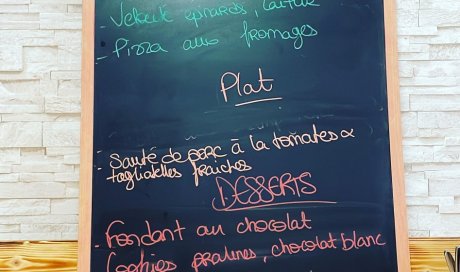 - Velouté épinards, laitue
- Pizza aux fromages
Plat
- Sauté de porc à la tomates &
tagliatelles fraîches
DESSERTS
- Fondant au chocolat
- Cookies pralines, chocolat blanc